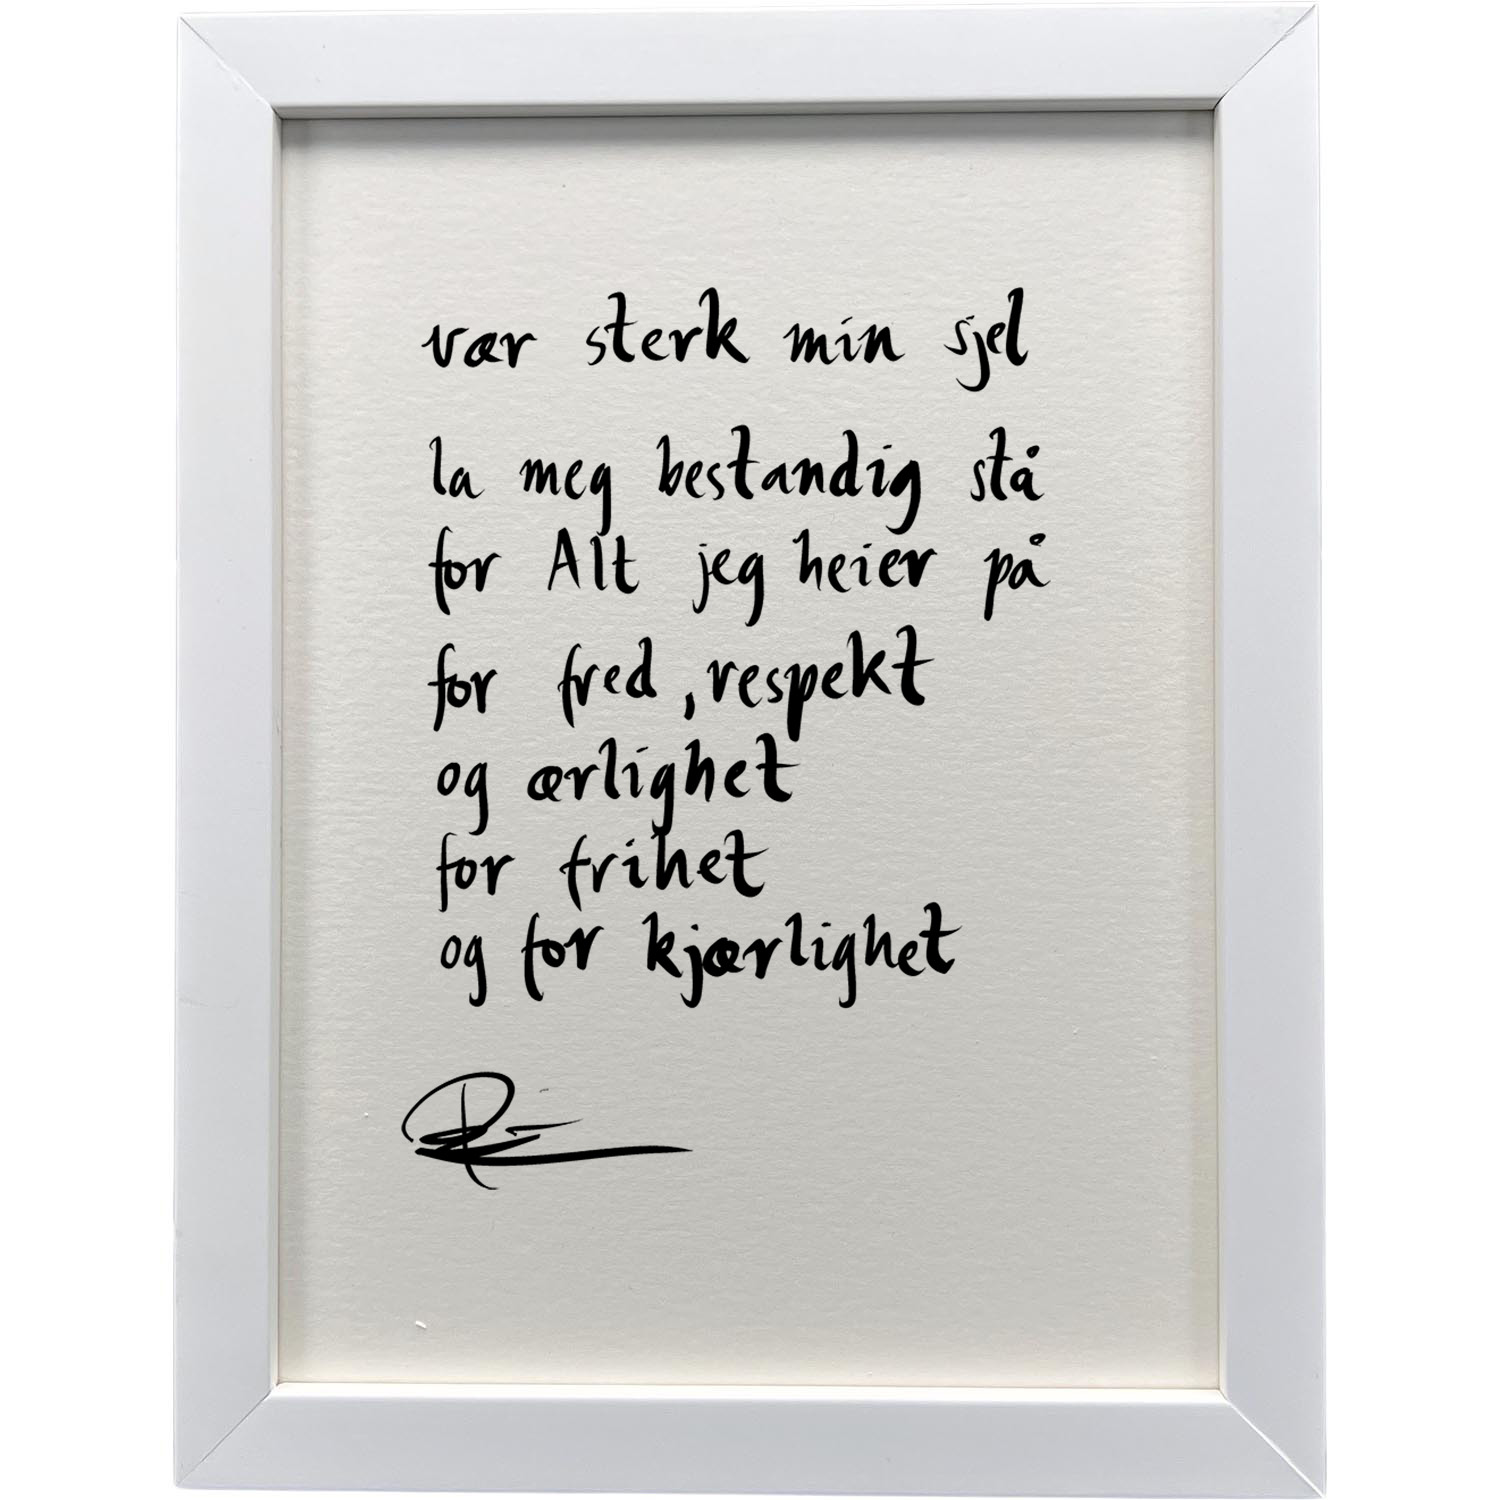 vær sterk min sjel
la meg bestandig stå
for Alt jeg heier på
for fred, respekt
og ærlighet
for frihet
og for kjærlighet